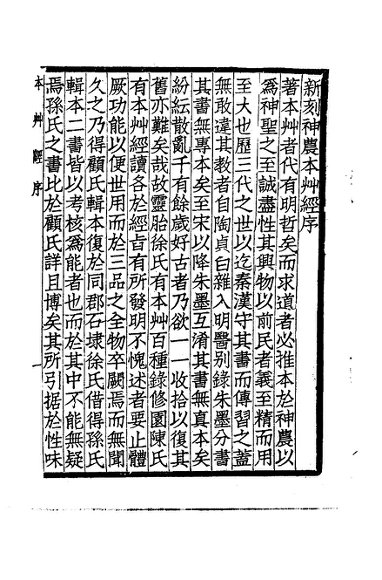 新刻神農本艸經序
著本艸者代有明哲矣而求道者必推本於神農以
爲神聖之至誠盡性其興物以前民者義至精而用
至大也歷三代之世以迄秦漢守其書而傳習之蓋
無敢違其教者自陶貞白雜入明醫別錄朱墨分書
其書無專本矣至宋以降朱墨互淆其書無真本矣
紛紜散亂千有餘歲好古者乃欲一一收拾以復其
舊亦難矣哉故靈胎徐氏有本艸百種錄修園陳氏
有本艸經讀各於經㫖有所發明不愧述者要止體
厥功能以便世用而於三品之全物卒闕焉而無聞
久之乃得顧氏輯本復於同郡石埭徐氏借得孫氏
輯本二書皆以考核爲能者也而於其中不能無疑
焉孫氏之書比於顧氏詳且博矣其所引据於性味
本艸經序
一